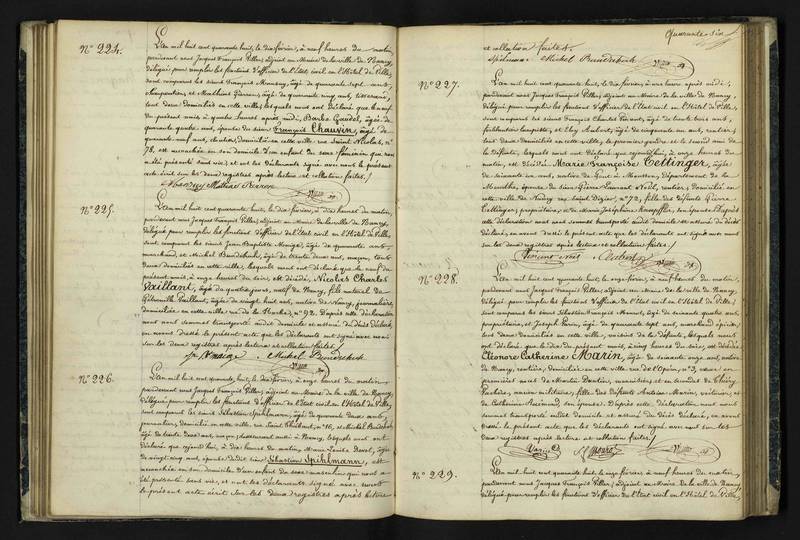 N° 224.
L'an mil huit cent quarante huit, le dix février, à neuf heures du matin
pardevant nous Jacques François Piller, adjoint au Maire de la ville de Nancy,
délégué pour remplir les fonctions d'officier de l'état civil en l'Hôtel de Ville,
sont comparus les sieurs François Monsieur, âgé de quarante sept ans,
et Mathieu Pierron, âgé de quarante cinq ans, tisserand,
tous deux domiciliés en cette ville; lesquels nous ont déclaré que le neuf
du présent mois à quatre heures après midi, Barbe Gaudel, âgée de
quarante quatre ans, épouse du sieur François Chauvin, âgé de
quarante neuf ans, domiciliée en cette ville rue Saint Nicolas, n°
78, est accouchée en son domicile d'un enfant du sexe féminin que nous
a été présenté sans vie; et ont les déclarants signé avec nous le présent
acte écrit sur les deux registres après lecture et collation faites./
Mathieu Pierron
N° 225.
L'an mil huit cent quarante huit, le dix février, à dix heures du matin,
pardevant nous Jacques François Piller, adjoint au Maire de la ville de Nancy,
délégué pour remplir les fonctions d'officier de l'état civil en l'Hôtel de Ville,
sont comparus les sieurs Jean Baptiste Monige, âgé de quarante ans,
marchand, et Michel Bundschuh, âgé de trente deux ans, maçon, tous
deux domiciliés en cette ville, lesquels nous ont déclaré que le neuf du
présent mois, à onze heures du soir, est décédé, Nicolas Charles
Vaillant, âgé de quatre jours, natif de Nancy, fils naturel de
Pétronille Vaillant, âgée de vingt huit ans, native de Nancy, journalière,
domiciliée en cette ville rue de la n° 92. D'après cette déclaration
nous nous sommes transporté audit domicile et assuré du décès déclaré,
en avons dressé le présent acte que les déclarants ont signé avec nous
sur les deux registres après lecture et collation faites./
Michel Bundschuh
N° 226.
L'an mil huit cent quarante huit, le dix février, à onze heures du matin
pardevant nous Jacques François Piller, adjoint au Maire de la ville de Nancy,
délégué pour remplir les fonctions d'officier de l'état civil en l'Hôtel de Ville,
sont comparus les sieurs Sébastien Spihlmann, âgé de quarante deux ans,
journalier, domicilié en cette ville, rue Saint Thiébaut, n° 16, et Michel Bundschuh,
âgé de trente deux ans, maçon, demeurant aussi à Nancy, lesquels nous ont
déclaré que ce jourd'hui, à dix heures du matin, Marie Louise âgée
de vingt cinq ans, épouse dudit sieur Sébastien Spihlmann, est
accouchée en son domicile d'un enfant du sexe masculin qui nous a
été présenté sans vie, et ont les déclarants signé avec nous
le présent acte écrit sur les deux registres après lecture
Quarante-six
et collation faites.
Spihlmann Michel Bundschuh
N° 227.
L'an mil huit cent quarante huit, le dix février, à une heure après midi,
pardevant nous Jacques François Piller, adjoint au Maire de la ville de Nancy,
délégué pour remplir les fonctions d'officier de l'état civil en l'Hôtel de Ville,
sont comparus les sieurs François Charles Vincent, âgé de trente trois ans,
ferblantier lampiste, et Eloy Aubert, âgé de cinquante un ans, rentier,
tous deux domiciliés en cette ville, le premier gendre et le second ami de
la défunte, lesquels nous ont déclaré que ce jourd'hui, à onze heures du
matin, est décédée Marie Françoise Tettinger, âgée
de soixante six ans, native de département de la
Meurthe, épouse du sieur Pierre Laurent Noël, rentier, domiciliée en
cette ville de Nancy rue Saint Dizier, n° 72, fille des défunts Pierre
Tettinger, propriétaire, et de Marie Joséphine Knoepffler, son épouse. D'après
cette déclaration nous nous sommes transporté audit domicile et assuré du décès
déclaré, en avons dressé le présent acte que les déclarants ont signé avec nous
sur les deux registres après lecture et collation faites./
Vincent Noël Aubert
N° 228.
L'an mil huit cent quarante huit, le onze février, à neuf heures du matin,
pardevant nous Jacques François Piller, adjoint au Maire de la ville de Nancy,
délégué pour remplir les fonctions d'officier de l'état civil en l'Hôtel de Ville,
sont comparus les sieurs Sébastien François Menard, âgé de soixante quatre ans,
propriétaire, et Joseph âgé de quarante sept ans, marchand épicier,
tous deux domiciliés en cette ville, voisins de la défunte, lesquels nous
ont déclaré que le dix du présent mois, à cinq heures du soir, est décédée
Eléonore Catherine Marin, âgée de soixante onze ans, native
de Nancy, rentière, domiciliée en cette ville rue de l'Opéra, n° 3, veuve en
premières noces de Martin et en secondes de Thierry
militaire, fille des défunts Antoine Marin, voiturier, et
de Catherine son épouse. D'après cette déclaration nous nous
sommes transporté audit domicile et assuré du décès déclaré, en avons
dressé le présent acte, que les déclarants ont signé avec nous sur les
deux registres après lecture et collation faites./
N° 229.
L'an mil huit cent quarante huit, le onze février à neuf heures du matin,
pardevant nous Jacques François Piller, adjoint au Maire de la ville de Nancy
délégué pour remplir les fonctions d'officier de l'état civil en l'Hôtel de Ville,